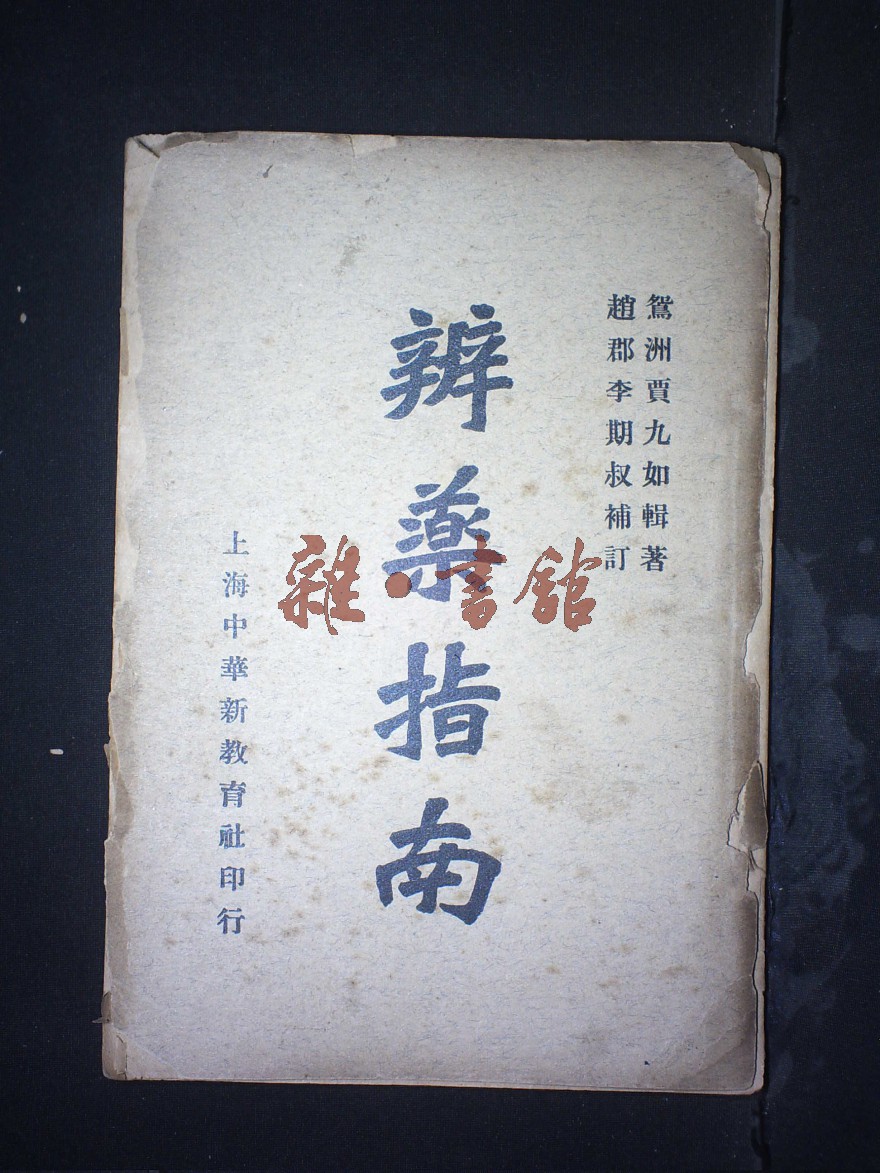 鴛洲賈九如輯著
趙郡李期叔補訂
辨藥指南
上海中華新教育社印行
雜·書館